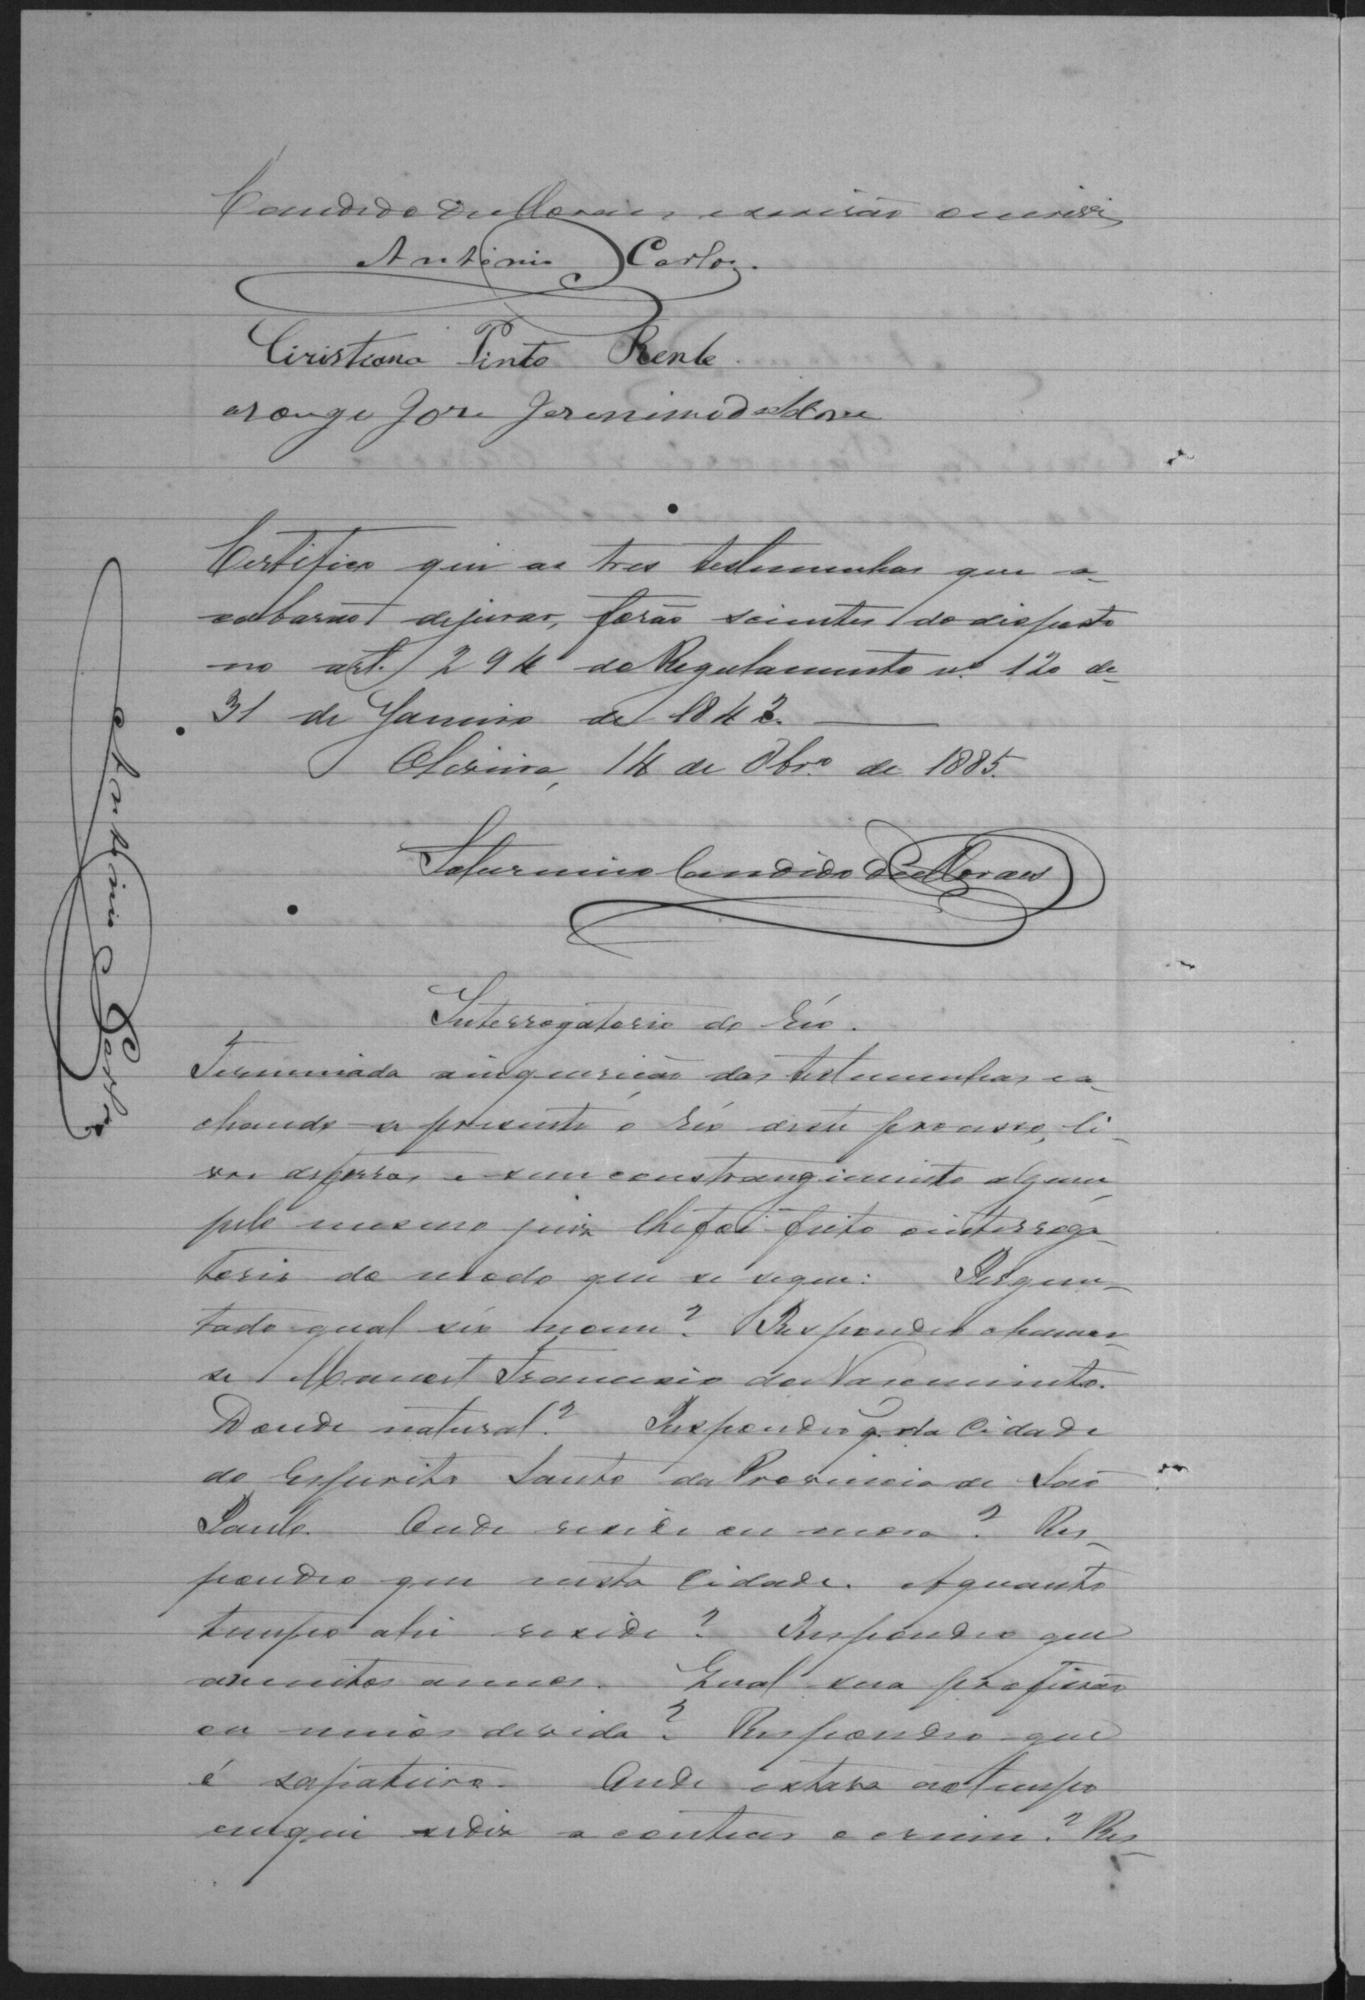 Candido de Moraes escrivão o escrevi
Antonio Carlos.
Ciristiano Pinto Rente.
arougo José Jeronimo da
Certifico que as tres testemunhas que a-
cabarão dejurar, forão scientes do disposto
no art. 294 do Regulamento nº 120 de
31 de Janeiro de 1842.
Oliveira, 14 de 9brº de 1885.
Saturnino Candido de Moraes
Antonio Carlos
Interrogatorio do réo.
Terminada ainquerição das testemunhas ea-
chando-se presente o réo deste processo, li-
vre deferros e sem constrangimento algum
pelo mesmo juiz lhefoi feito ointerroga-
torio do modo que se segue: Pergun-
tado qual séo nome? Respondeo chamar-
se Manoel Francisco do Nascimento.
Donde natural? Respondeo q. da Cidade
do Espirito Santo da Provincia de São
Paulo. Onde reside ou mora? Res-
pondeo que nesta Cidade. Aquanto
tempo ahi reside? Respondeo que
amuitos annos. Qual sua profissão
ou meios devida? Respondeo que
é sapateiro. Onde estava aotempo
emque sediz aconteceo o crime? Res-